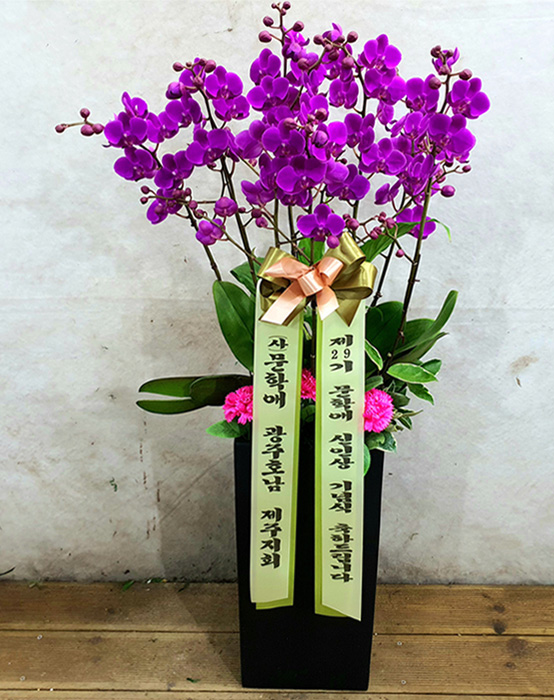 (사)문학애 광주호남 제주지회
제29기 문학애 신인상 기념식 축하드립니다